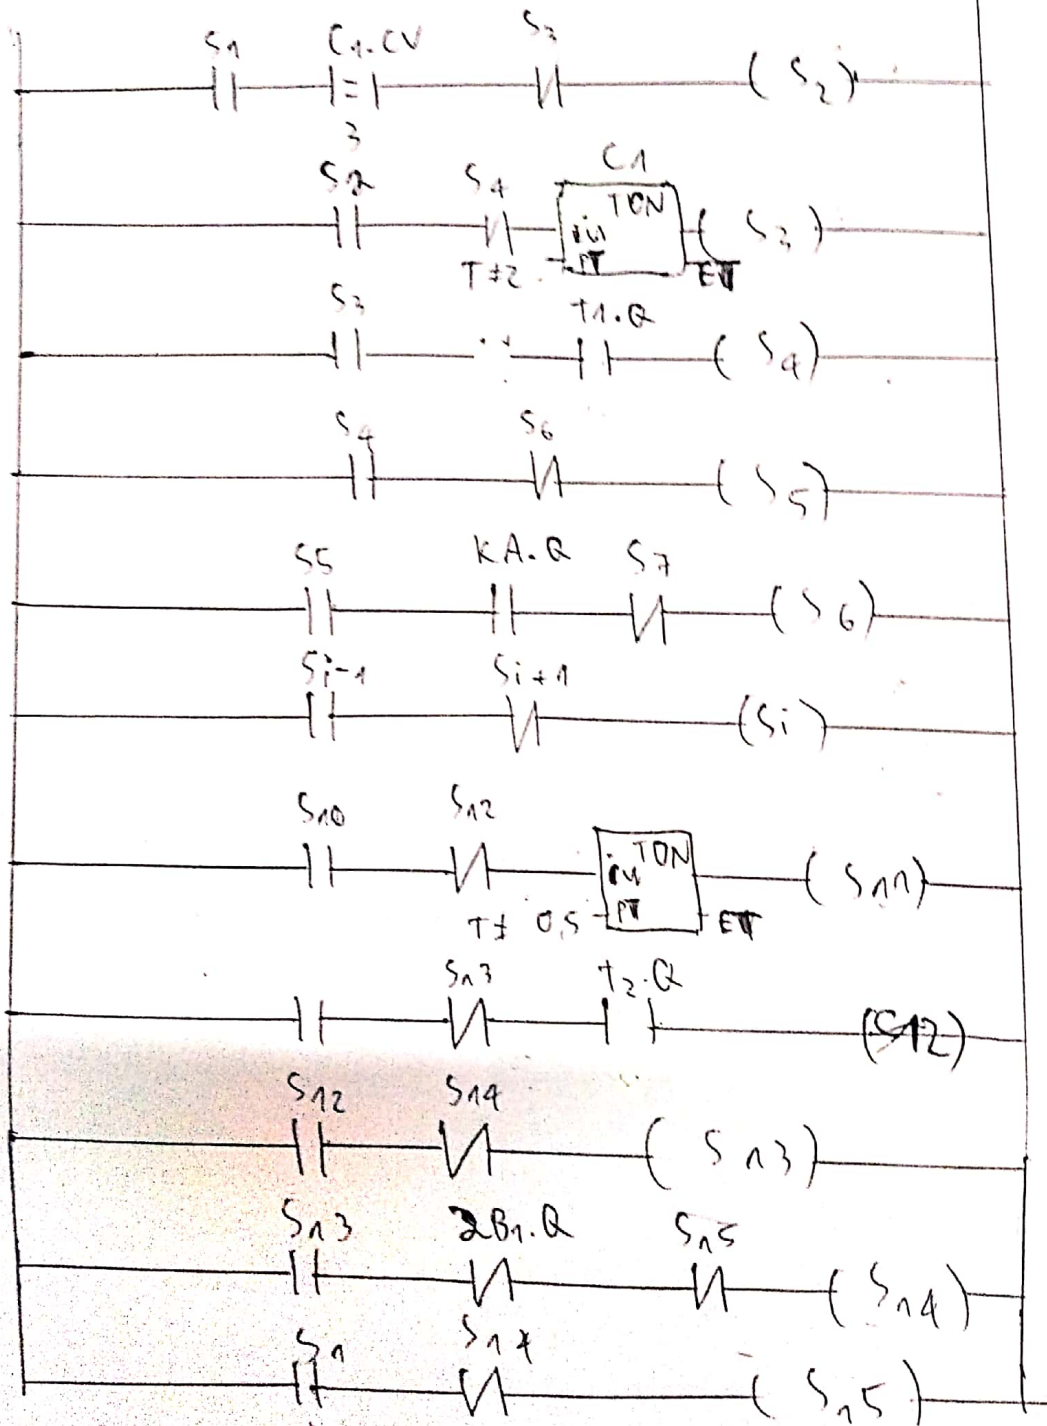 S1 C1.CV S3
( S2 )
=
3
S2 S4 C1
TON
in ( S3 )
T#2 PT ET
S3 t1.Q
( S4 )
S4 S6
( S5 )
S5 KA.Q S7
( S6 )
Si-1 Si+1
(Si)
S10 S12
TON
in ( S11 )
T# 0,5 PT ET
S13 t2.Q
(S12)
S12 S14
( S13 )
S13 2B1.Q S15
( S14 )
S1
( S15 )